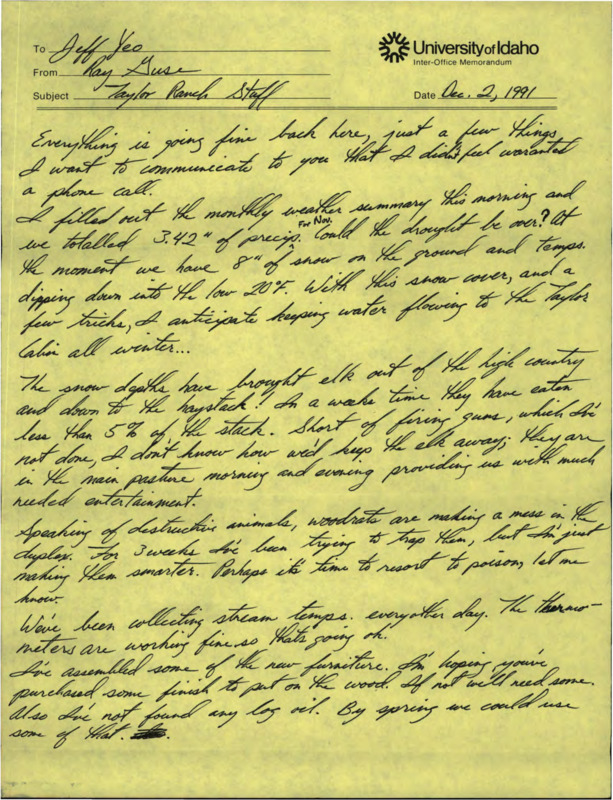 To Jeff Yeo
University of Idaho
Inter-Office Memorandum
From Ray Guse
Subject Taylor Ranch Staff
Date Dec. 2, 1991
Everything is going fine back here, just a few things
I want to communicate to you that I didn't feel waranted
a phone call.
I filled out the monthly weather summary this morning and
we totalled 3.42" of precip. For Nov. Could the drought be over? At
the moment we have 8" of snow on the ground and temps.
dipping down into the low 20°F. With this snow cover, and a
few tricks, I anticipate keeping water flowing to the Taylor
Cabin all winter...
The snow depths have brought elk out of the high country
and down to the haystack! In a weeks time they have eaten
less than 5% of the stack. Short of firing guns, which I've
not done, I don't know how we'd keep the elk away; they are
in the main pasture morning and evening providing us with much
needed entertainment.
Speaking of destructive animals, woodrats are making a mess in the
duplex. For 3 weeks I've been trying to trap them, but I'm just
making them smarter. Perhaps it's time to resort to poison, let me
know.
We've been collecting stream temps. everyother day. The thermo-
meters are working fine so thats going ok.
I've assembled some of the new furniture. I'm hoping you've
purchased some finish to put on the wood. If not we'll need some.
Also I've not found any log oil. By spring we could use
some of that.